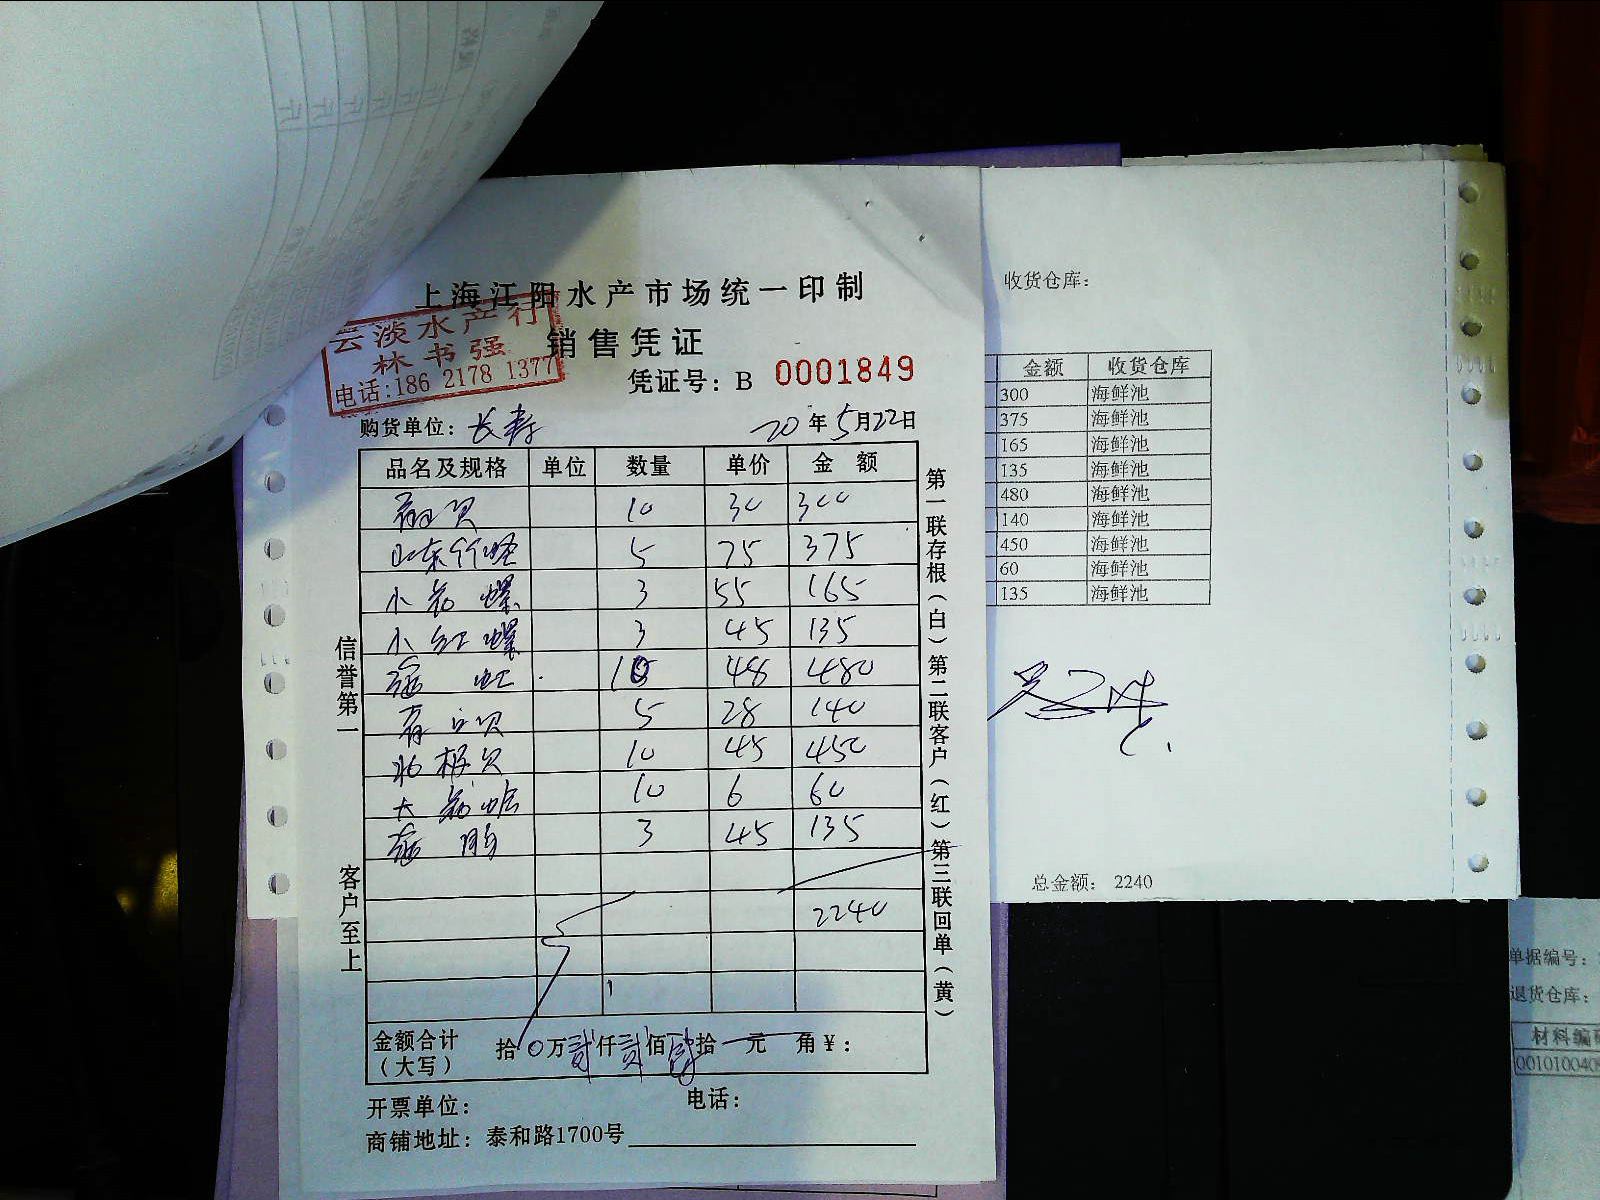 上海江阳水产市场统一印制
云淡水产行
林书强
电话:186 2178 1377
销售凭证
凭证号: B 0001849
购货单位: 长寿 20年5月22日
品名及规格 单位 数量 单价 金额
10 30 300
山东 5 75 375
小 螺 3 55 165
小红螺 3 45 135
10 48 480
5 28 140
贝 10 45 450
大 10 6 60
3 45 135
2240
金额合计(大写) 拾0万贰仟贰佰肆拾元 角¥:
开票单位: 电话:
商铺地址: 泰和路1700号
信誉第一
客户至上
第一联存根(白)第二联客户(红)第三联回单(黄)
收货仓库:
金额 收货仓库
300 海鲜池
375 海鲜池
165 海鲜池
135 海鲜池
480 海鲜池
140 海鲜池
450 海鲜池
60 海鲜池
135 海鲜池
总金额: 2240
单据编号:
退货仓库:
材料编